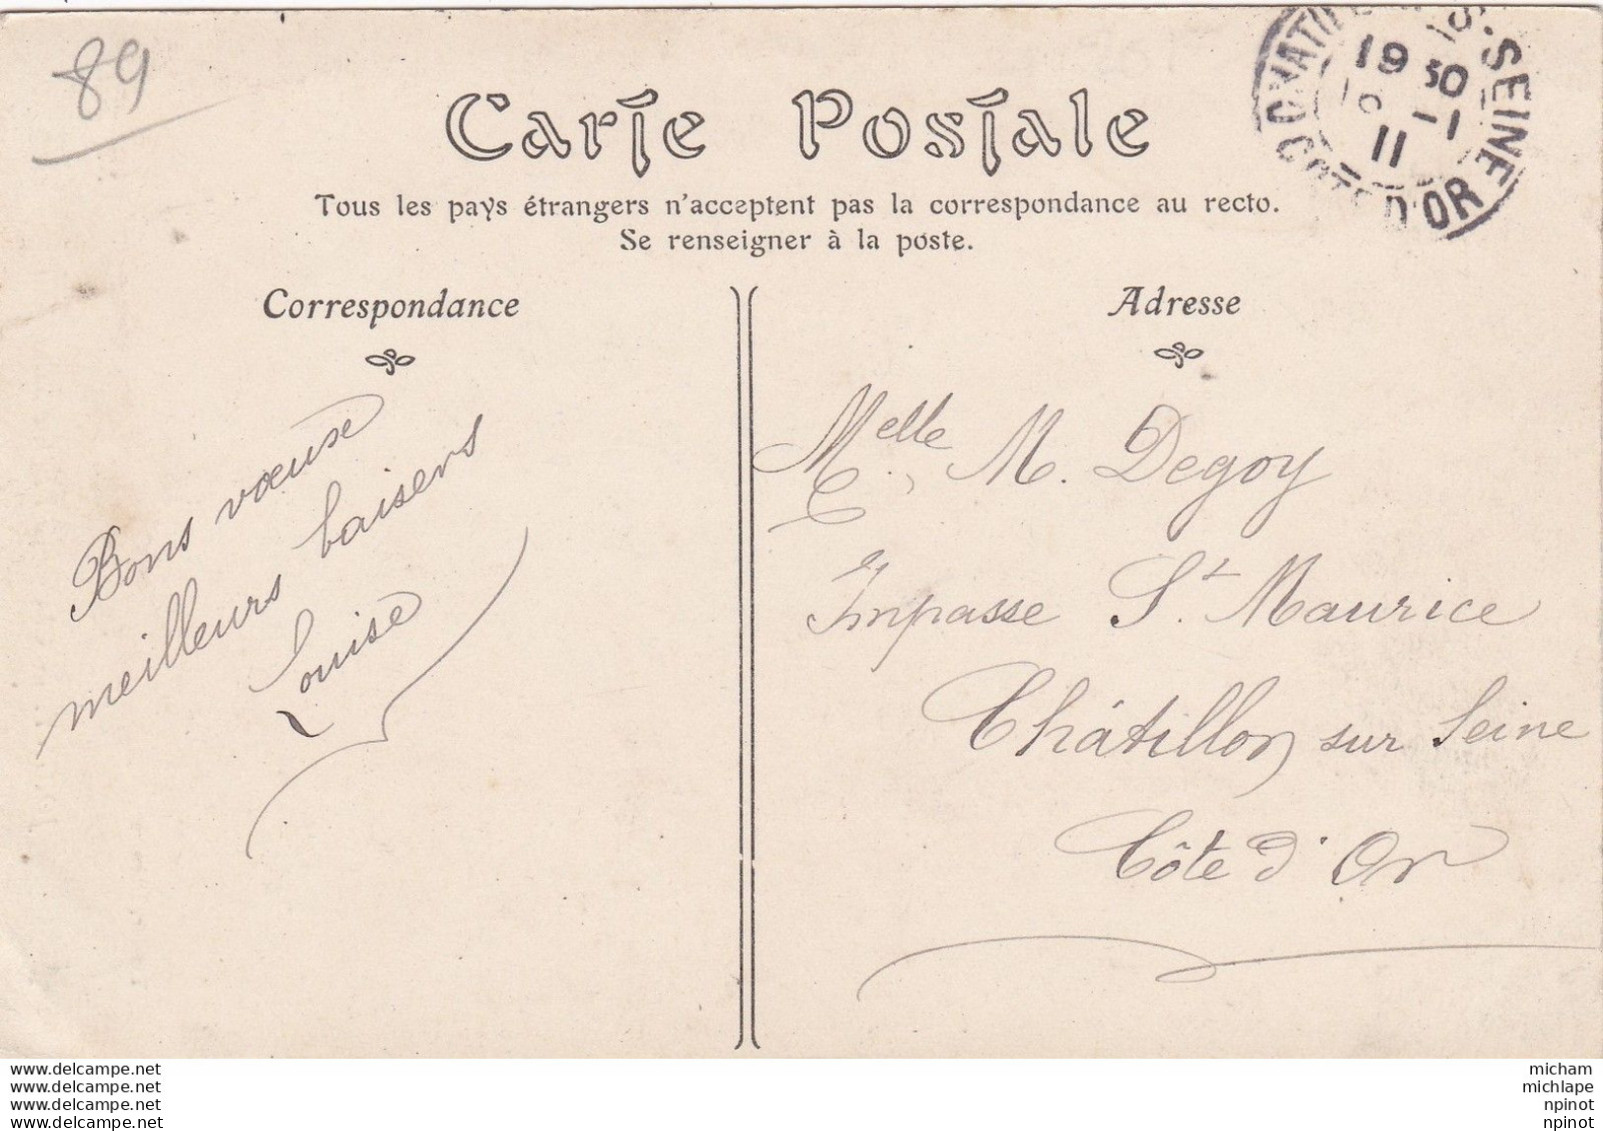 89
Carte Postale
Tous les pays étrangers n'acceptent pas la correspondance au recto.
Se renseigner à la poste.
SEINE
19 30
-1
11
COTE D'OR
Correspondance
Bons vœuse
meilleurs baisers
Louise
Adresse
Melle M. Degoy
Impasse St. Maurice
Châtillon sur Seine
Côte d'Or
www.delcampe.net
www.delcampe.net
www.delcampe.net
www.delcampe.net
micham
michlape
npinot
npinot